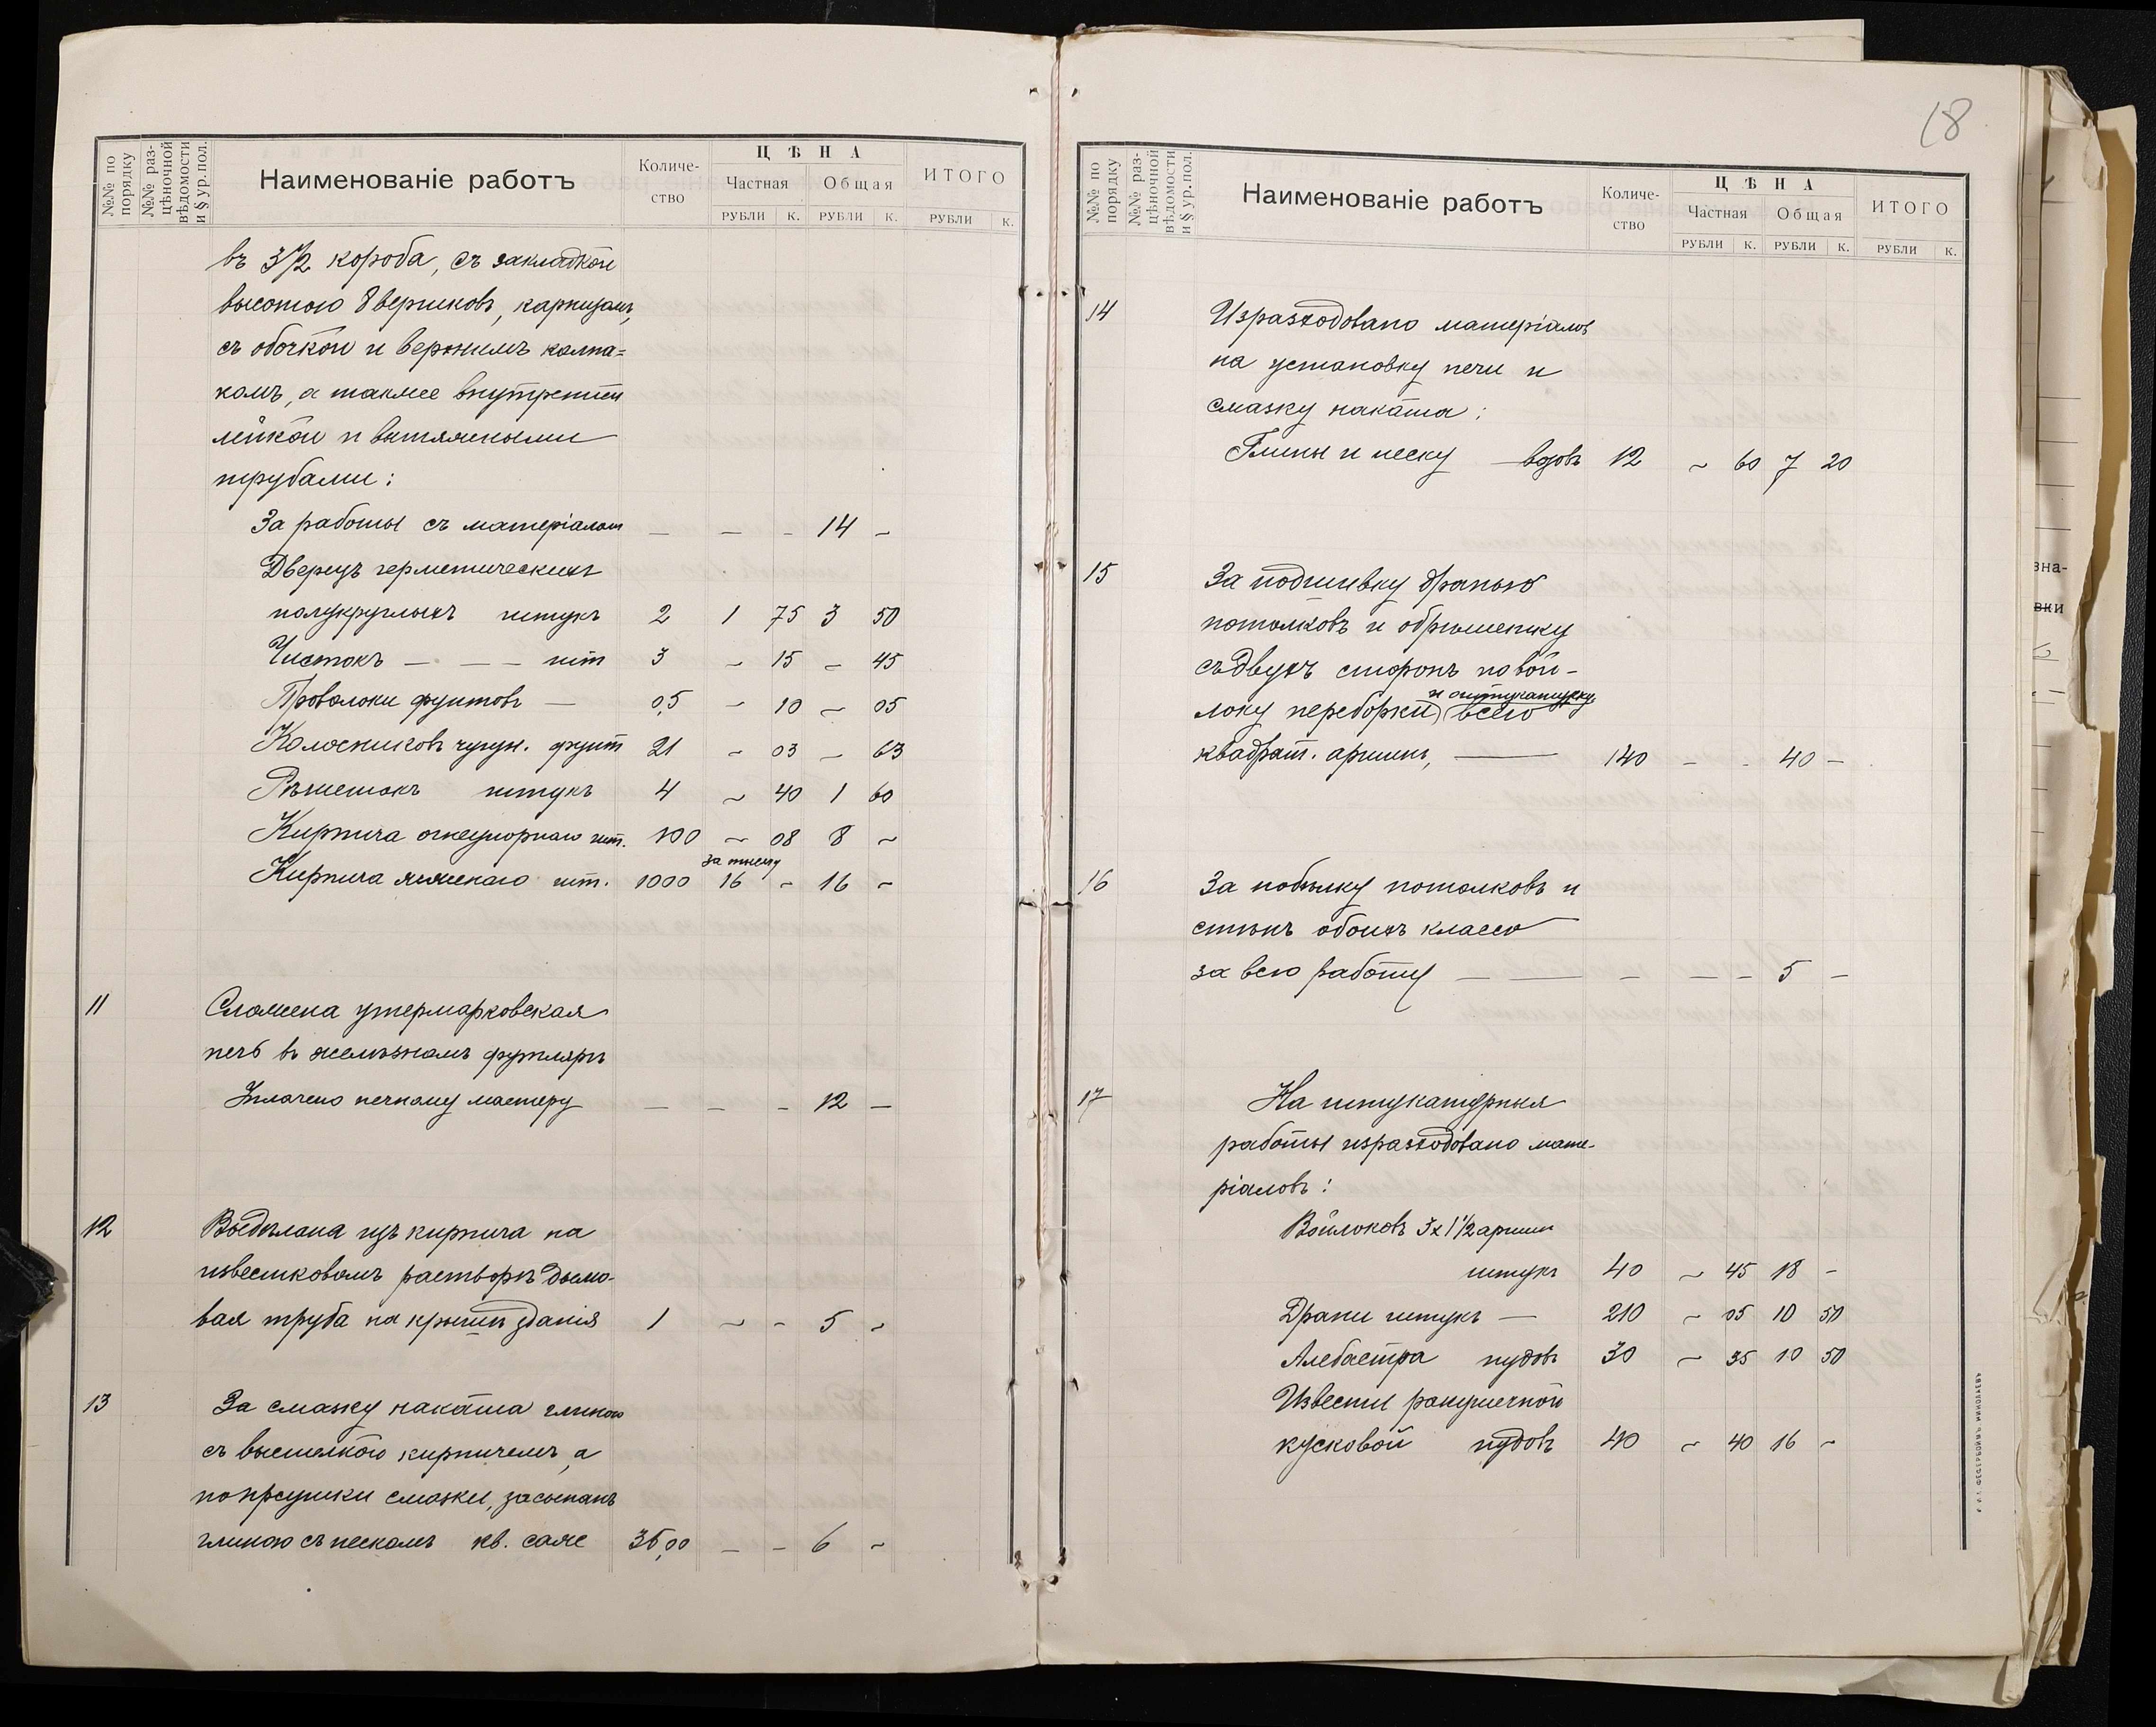 №№ по порядку
№№ раз-
цѣночной
вѣдомости
и § ур. пол.
Наименованіе работъ
Количе-
ство
ЦѢНА
Частная Общая
ИТОГО
РУБЛИ К. РУБЛИ К. РУБЛИ К.
въ 3½ короба, съ закладкой
высотою 8 вершковъ, карнизомъ,
съ обочкой и верхнимъ колпа=
комъ, а также внутренней
и вытяжными
трубами:
За работы съ матеріалом — — - 14 -
Дверецъ герметическихъ
полукруглыхъ штукъ 2 1 75 3 50
Чистокъ — — — шт 3 - 15 - 45
Проволоки фунтовъ — 0,5 - 10 - 05
Колосниковъ чугун. фунт 21 - 03 - 63
Рѣшетокъ штукъ 4 ~ 40 1 60
Кирпича огнеупорнаго шт. 100 ~ 08 8 ~
за тысячу
Кирпича шт. 1000 16 - 16 -
11 Сложена утермарковская
печь въ желѣзномъ футлярѣ
Уплачено печному мастеру — — - 12 —
12 Выдѣлана изъ кирпича на
известковомъ растворѣ дымо-
вая труба на крышѣ зданія 1 ~ - 5 -
13 За смазку наката глиною
съ выстилкою кирпичемъ, а
по просушки смазки, засыпанъ
глиною съ пескомъ кв. саж 36,00 — - 6 ~
18
№№ по порядку
№№ раз-
цѣночной
вѣдомости
и § ур. пол.
Наименованіе работъ
Количе-
ство
ЦѢНА
Частная Общая
ИТОГО
РУБЛИ К. РУБЛИ К. РУБЛИ К.
14 Израсходовано матеріаловъ
на установку печи и
смазку наката:
Глины и песку возовъ 12 ~ 60 7 20
15 За подшивку дранью
потолковъ и обрѣшетку
съ двухъ сторонъ по вой-
и оштукатурку
локу переборки) (всего
квадрат. аршинъ, — 140 - - 40 -
16 За побѣлку потолковъ и
стѣнъ обоихъ классо
за всю работу — — — — - 5 -
17 На штукатурныя
работы израсходовано мате-
ріаловъ:
Войлоковъ 3х1½ аршин
штукъ 40 ~ 45 18 -
Драни штукъ — 210 ~ 05 10 50
Алебастра пудовъ 30 ~ 35 10 50
Извести ракушечной
кусковой пудовъ 40 ~ 40 16 ~
зна-
вки